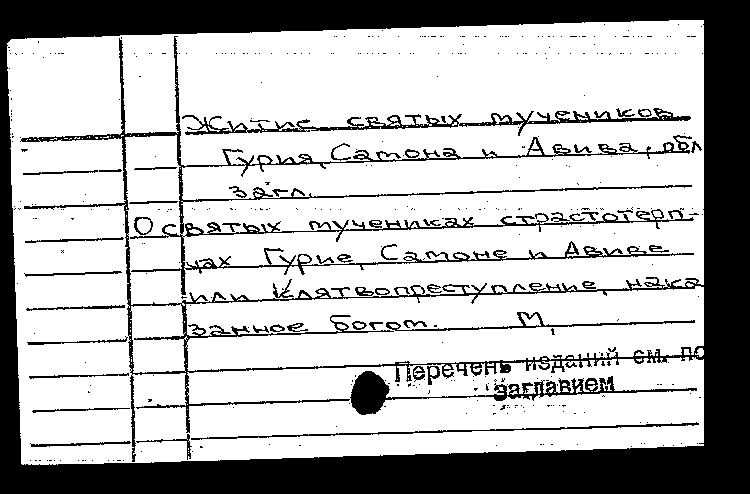 Житие святых мучеников
Гурия, Самона и Авива, обл.
загл.
О святых мучениках страстотерп-
цах Гурие, Самоне и Авиве
или клятвопреступление, нака
занное богом. М,
Перечень изданий см. по
заглавием